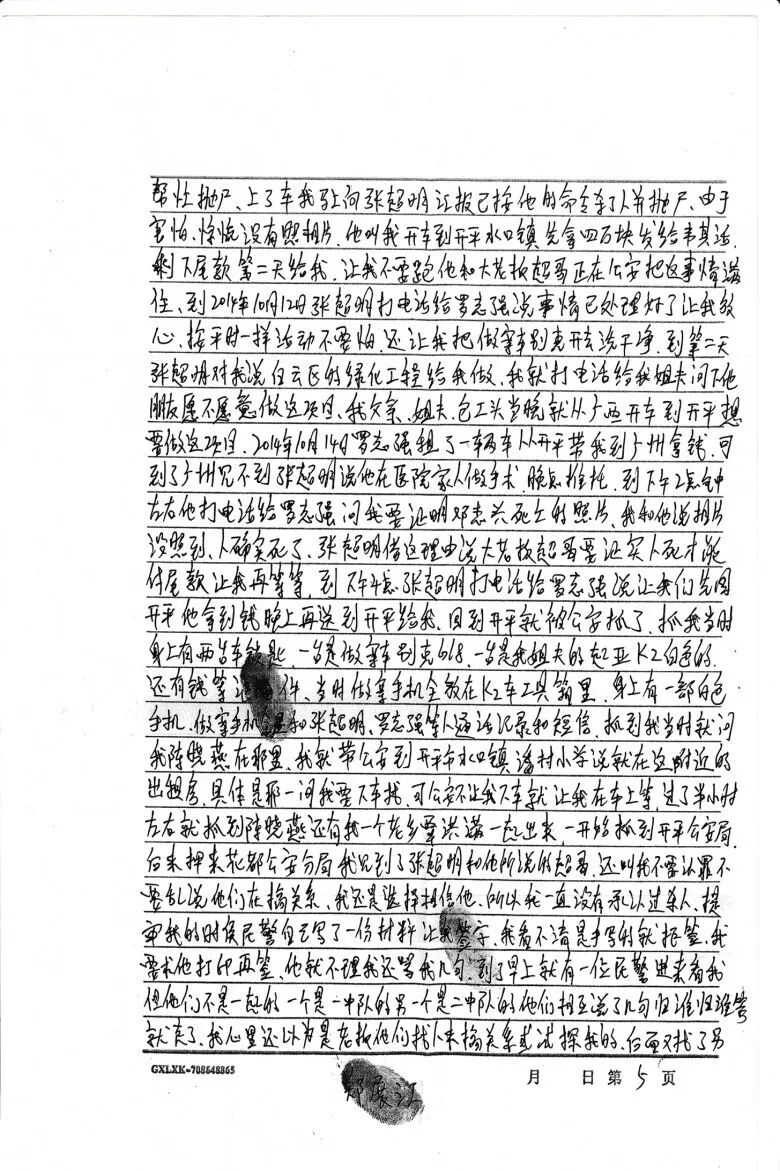 帮忙抛尸、上了车我马上向张超明汇报已按他的命令杀了人并抛尸、由于
害怕、惊慌没有照相片、他叫我开车到开平水口镇先拿四万块发给韦其活
剩下尾款第二天给我、让我不要跑他和大老板超哥正在公安把这事情灌
住、到2014年10月12日张超明打电话给罗志强说事情已处理好了让我放
心、按平时一样活动不要怕、还让我把做案车别克开去洗干净、到第二天
张超明对我说白云区的绿化工程给我做、我就打电话给我姐夫问下他
朋友愿不愿意做这项目、我父亲、姐夫、包工头当晚就从广西开车到开平想
要做这项目、2014年10月14日罗志强租了一车两车从开平带我到广州拿钱、可
到了广州见不到张超明说他在医院家人做手术、晚点推托、到下午2点钟
左右他打电话给罗志强问我要证明邓志兴死亡的照片、我和他说相片
没照到、人确实死了、张超明借这理由说大老板超哥要证实人死才能
付尾款让我再等等、到下午4点张超明打电话给罗志强说让我们先回
开平他拿到钱晚上再送到开平给我、回到开平就被公安抓了、抓我当时
身上有两台车锁匙、一台是做案车别克618、一台是我姐夫的起亚K2白色的、
还有钱等 件、当时做案手机全放在K2车工具箱里、身上有一部白色
手机、做案手机 是和张超明、罗志强等人通话记录和短信、抓到我当时就问
我陈晓燕在那里、我就带公安到开平市水口镇 村小学说就在这附近的
出租房、具体是那一间我要下车找、可公安不让我下车就让我在车上等、过了半小时
左右就抓到陈晓燕还有我一个老乡覃洪 一起出来、一开始抓到开平公安局、
后来押来花都公安分局我见到了张超明和他所说的超哥、还叫我不要认罪不
要乱说他们在搞关系、我还是选择相信他、所以我一直没有承认过杀人、提
审我的时侯民警自己写了一份材料让我签字、我看不清是手写的就拒签、我
要求他打印再签、他就不理我还骂我几句、到了早上就有一位民警进来看我
但他们不是一起的一个是一中队的另一个是二中队的他们相互说了几句归谁归谁管
就走了、我心里还以为是老板他们找人来搞关系或试探我的、后面又找了另
GXLXK-708648865
月 日第5页
郑展江